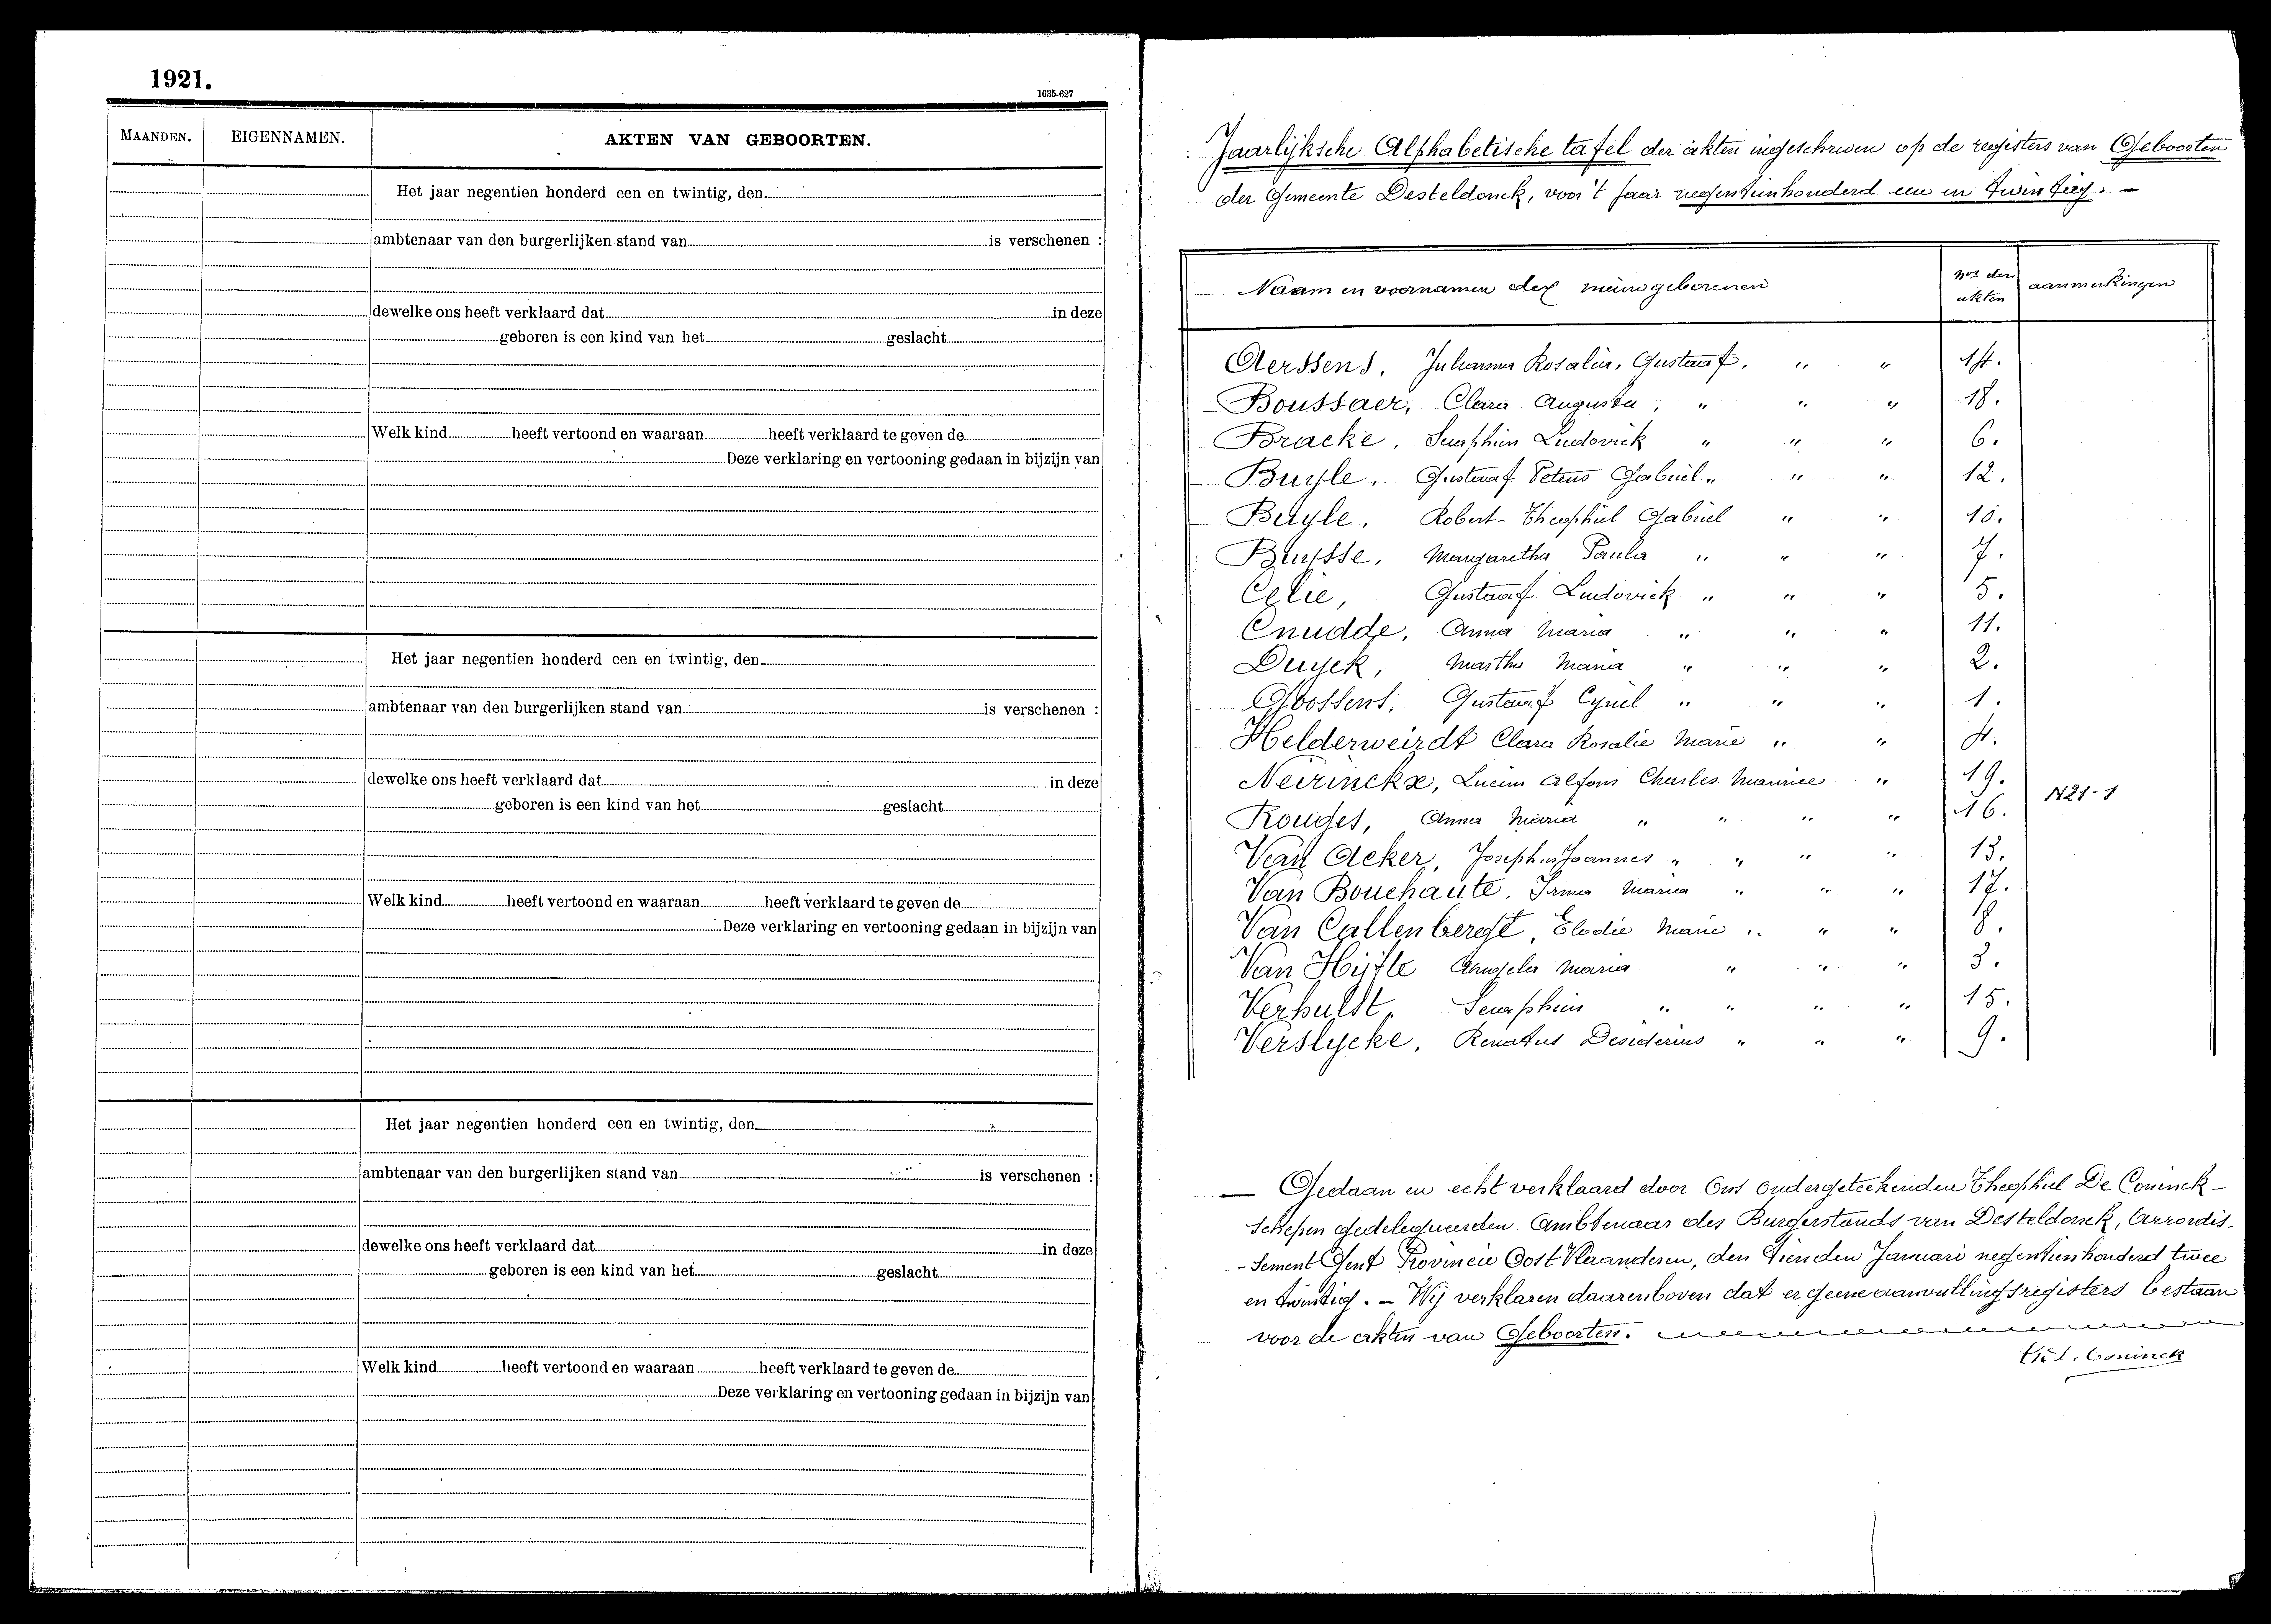 1921.
1635-627
MAANDEN. EIGENNAMEN. AKTEN VAN GEBOORTEN.
Het jaar negentien honderd een en twintig, den
ambtenaar van den burgerlijken stand van is verschenen :
dewelke ons heeft verklaard dat in deze
geboren is een kind van het geslacht
Welk kind heeft vertoond en waaraan heeft verklaard te geven de
Deze verklaring en vertooning gedaan in bijzijn van
Het jaar negentien honderd een en twintig, den
ambtenaar van den burgerlijken stand van is verschenen :
dewelke ons heeft verklaard dat in deze
geboren is een kind van het geslacht
Welk kind heeft vertoond en waaraan heeft verklaard te geven de
Deze verklaring en vertooning gedaan in bijzijn van
Het jaar negentien honderd een en twintig, den
ambtenaar van den burgerlijken stand van is verschenen :
dewelke ons heeft verklaard dat in deze
geboren is een kind van het geslacht
Welk kind heeft vertoond en waaraan heeft verklaard te geven de
Deze verklaring en vertooning gedaan in bijzijn van
Jaarlijksche Alphabetische tafel der akten ingeschreven op de registers van Geboorten
der Gemeente Desteldonck, voor 't jaar negentienhonderd een en twintig. -
Naam en voornamen der nieuwgeborenen Nos der akten aanmerkingen
Aerssens, Rosalia, Gustaaf. " " 14.
Boussaer, Clara Augusta, " " " 18.
Bracke, Seraphien Ludovick " " " 6.
Buyle, Gustaaf Petrus Gabriël " " " 12.
Buyle, Robert-Theophiel Gabriel " " 10.
Buysse, Margaretha Paula " " " 7.
Celie, Gustaaf Ludovick " " " 5.
Cnudde, Anna Maria " " " 11.
Duyck, Martha Maria " " " 2.
Goossens, Gustaaf Cyriel " " " 1.
Helderweirdt Clara Rosalie Marie " " 4.
Neirinckx, Lucien Alfons Charles Maurice " 19. N21-1
Rouges, Anna Maria " " " " 16.
Van Acker, Joannes " " " " 13.
Van Bouchaute, Irma Maria " " " 17.
Van Callenbergt, Elodie Marie " " " 8.
Van Hijfte Angela Maria " " " 3.
Verhulst, Seraphien " " " " 15.
Verslycke, Renatus Desiderius " " " 9.
— Gedaan en echt verklaard door Ons ondergeteekenden Theophiel De Coninck-
Schepen gedelegueerden Ambtenaar des Burgerstands van Desteldonck, Arrondis-
-sement Gent Provincie Oost Vlaanderen, den tienden Januari negentienhonderd twee
en twintig. - Wij verklaren daarenboven dat er geene aanvullingsregisters bestaan
voor de akten van Geboorten.
Coninck